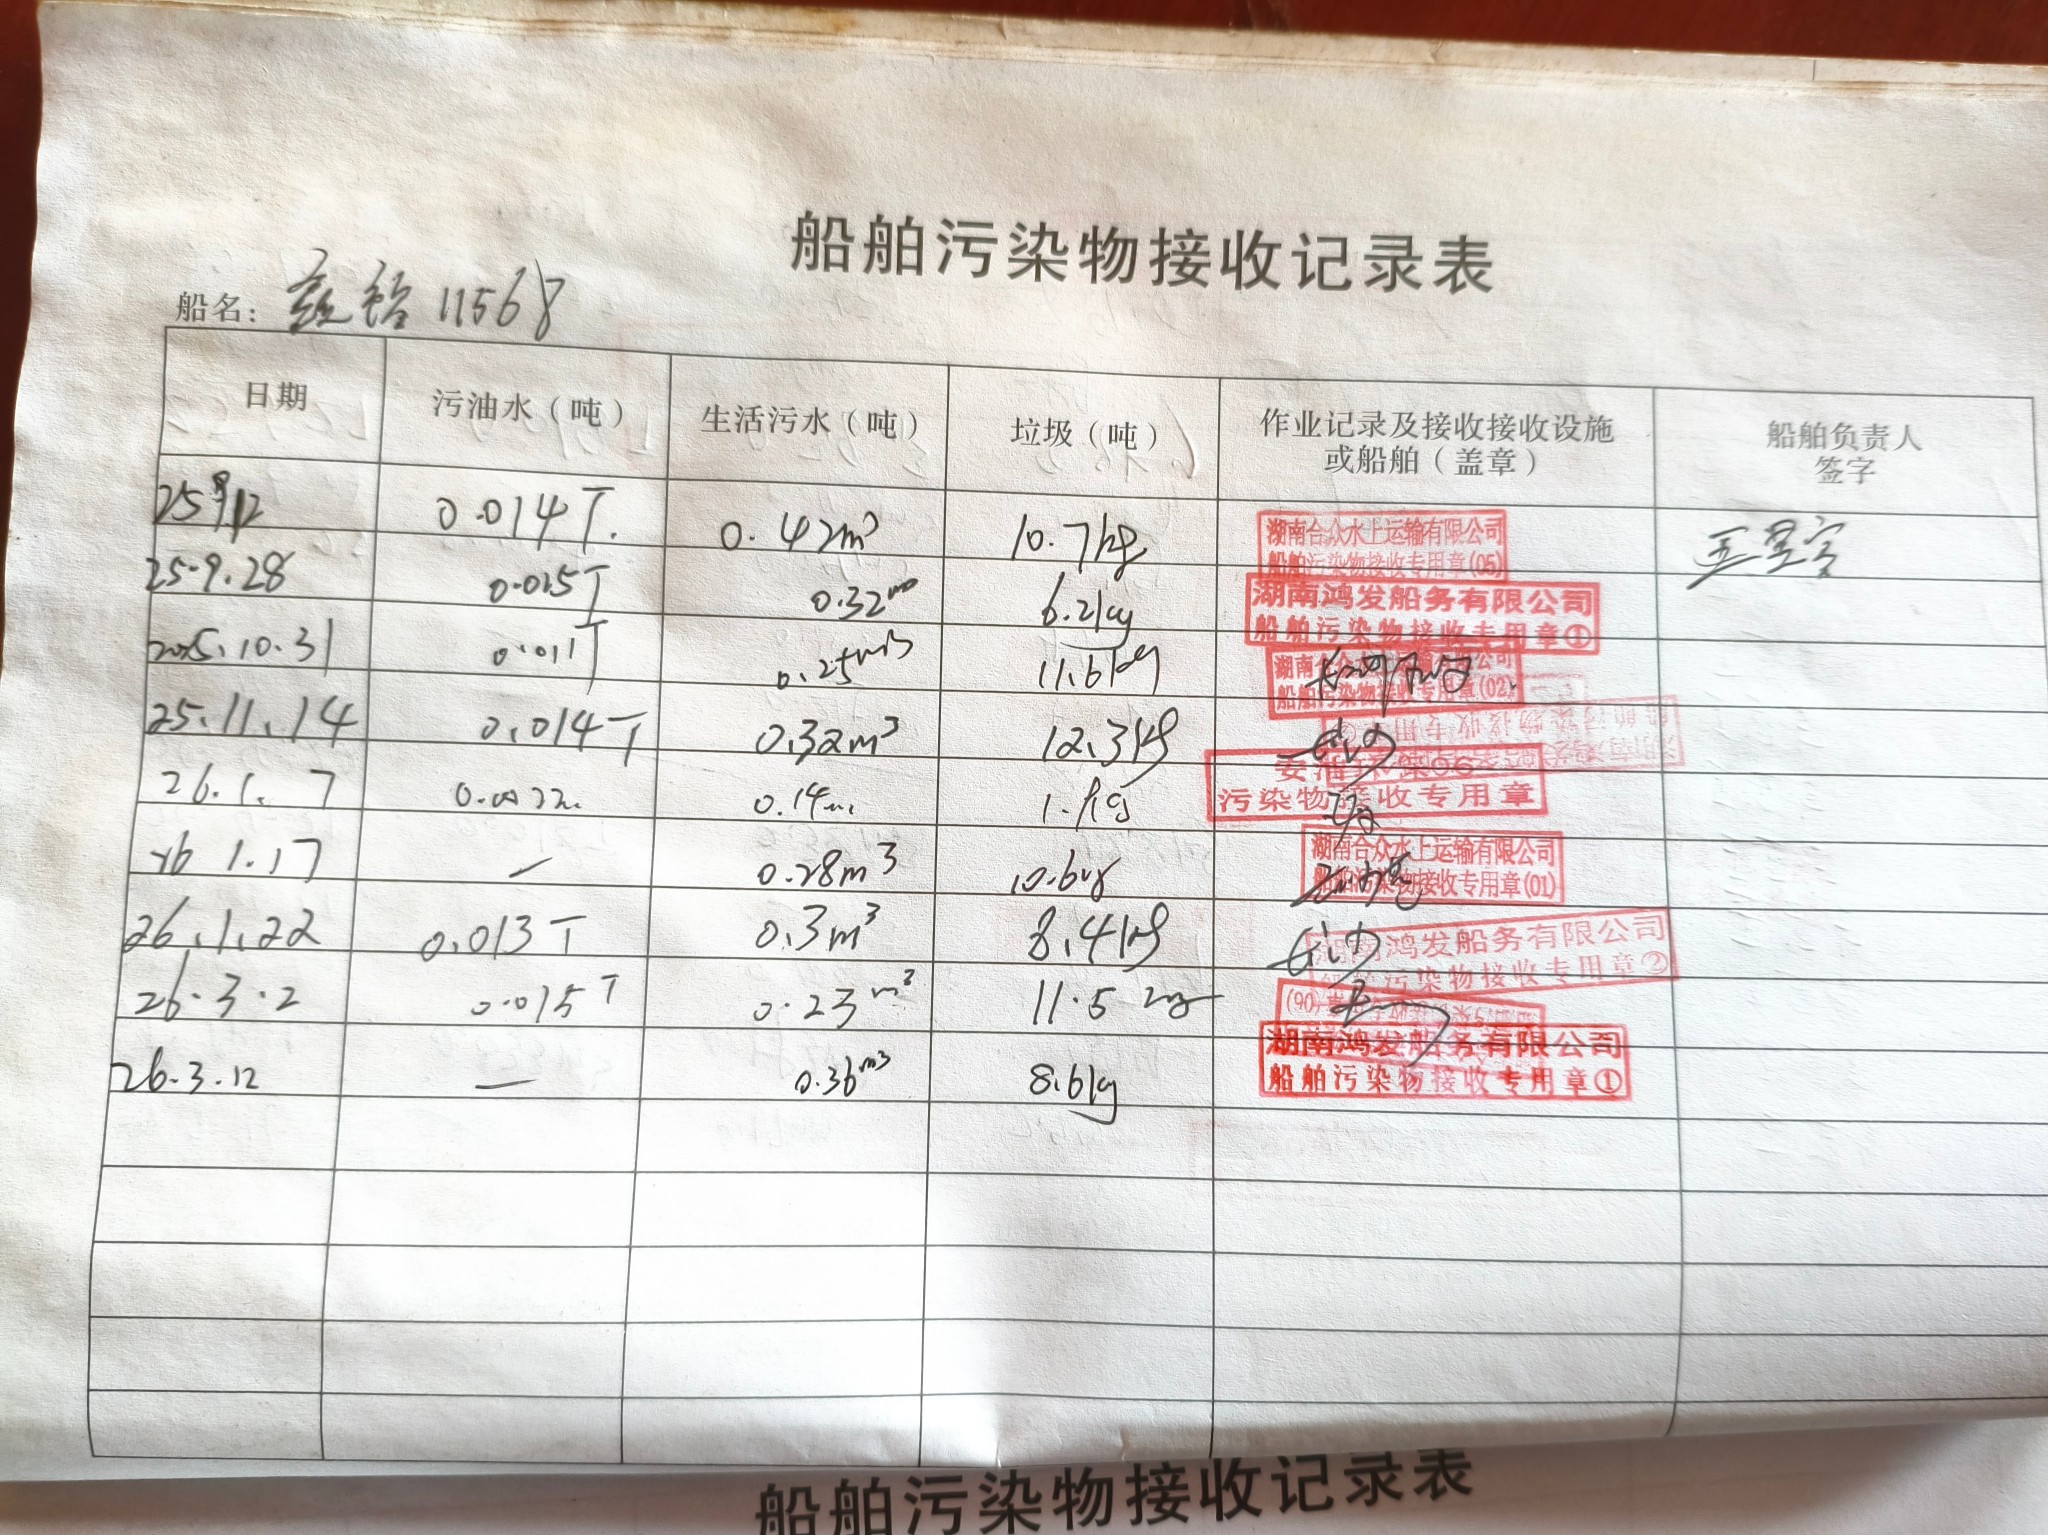 船舶污染物接收记录表
船名: 11568
日期 污油水（吨） 生活污水（吨） 垃圾（吨） 作业记录及接收接收设施或船舶（盖章） 船舶负责人签字
25 9.12 0.014T. 0.42m³ 10.7kg 湖南合众水上运输有限公司 船舶污染物接收专用章(05)
25.9.28 0.015T 0.32m³ 6.2kg 湖南鸿发船务有限公司 船舶污染物接收专用章①
2025.10.31 0.011T 0.25m³ 11.6kg 湖南合众水上运输有限公司 船舶污染物接收专用章(02)
25.11.14 0.014T 0.32m³ 12.3kg
26.1.7 0.14m 污染物接收专用章
26 1.17 — 0.28m³ 10.6kg 湖南合众水上运输有限公司 船舶污染物接收专用章(01)
26.1.22 0.013T 0.3m³ 8.4kg 湖南鸿发船务有限公司 船舶污染物接收专用章②
26.3.2 0.015T 0.23m³ 11.5kg
26.3.12 — 0.36m³ 8.6kg 湖南鸿发船务有限公司 船舶污染物接收专用章①
船舶污染物接收记录表